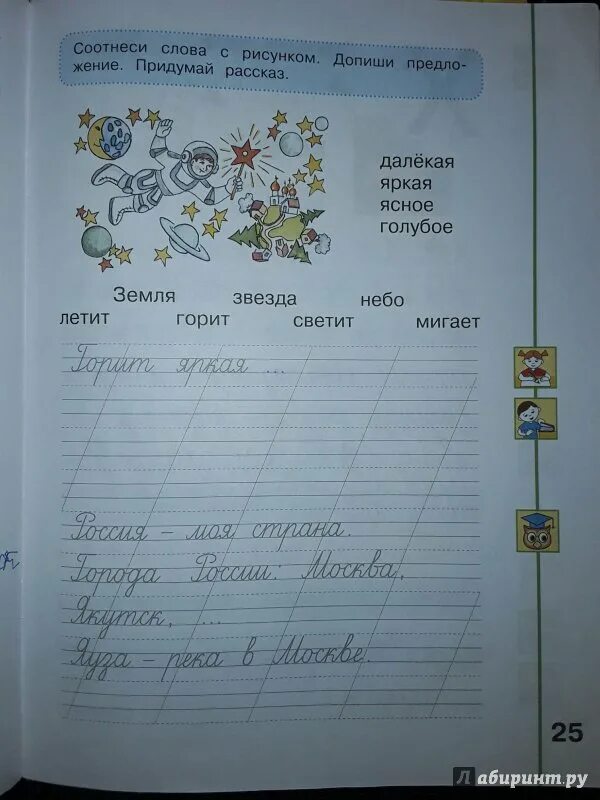 Соотнеси слова с рисунком. Допиши предло-
жение. Придумай рассказ.
далёкая
яркая
ясное
голубое
Земля звезда небо
летит горит светит мигает
Горит яркая ...
Россия – моя страна.
Города России: Москва,
Якутск, ...
Яуза – река в Москве.
25
Лабиринт.ру